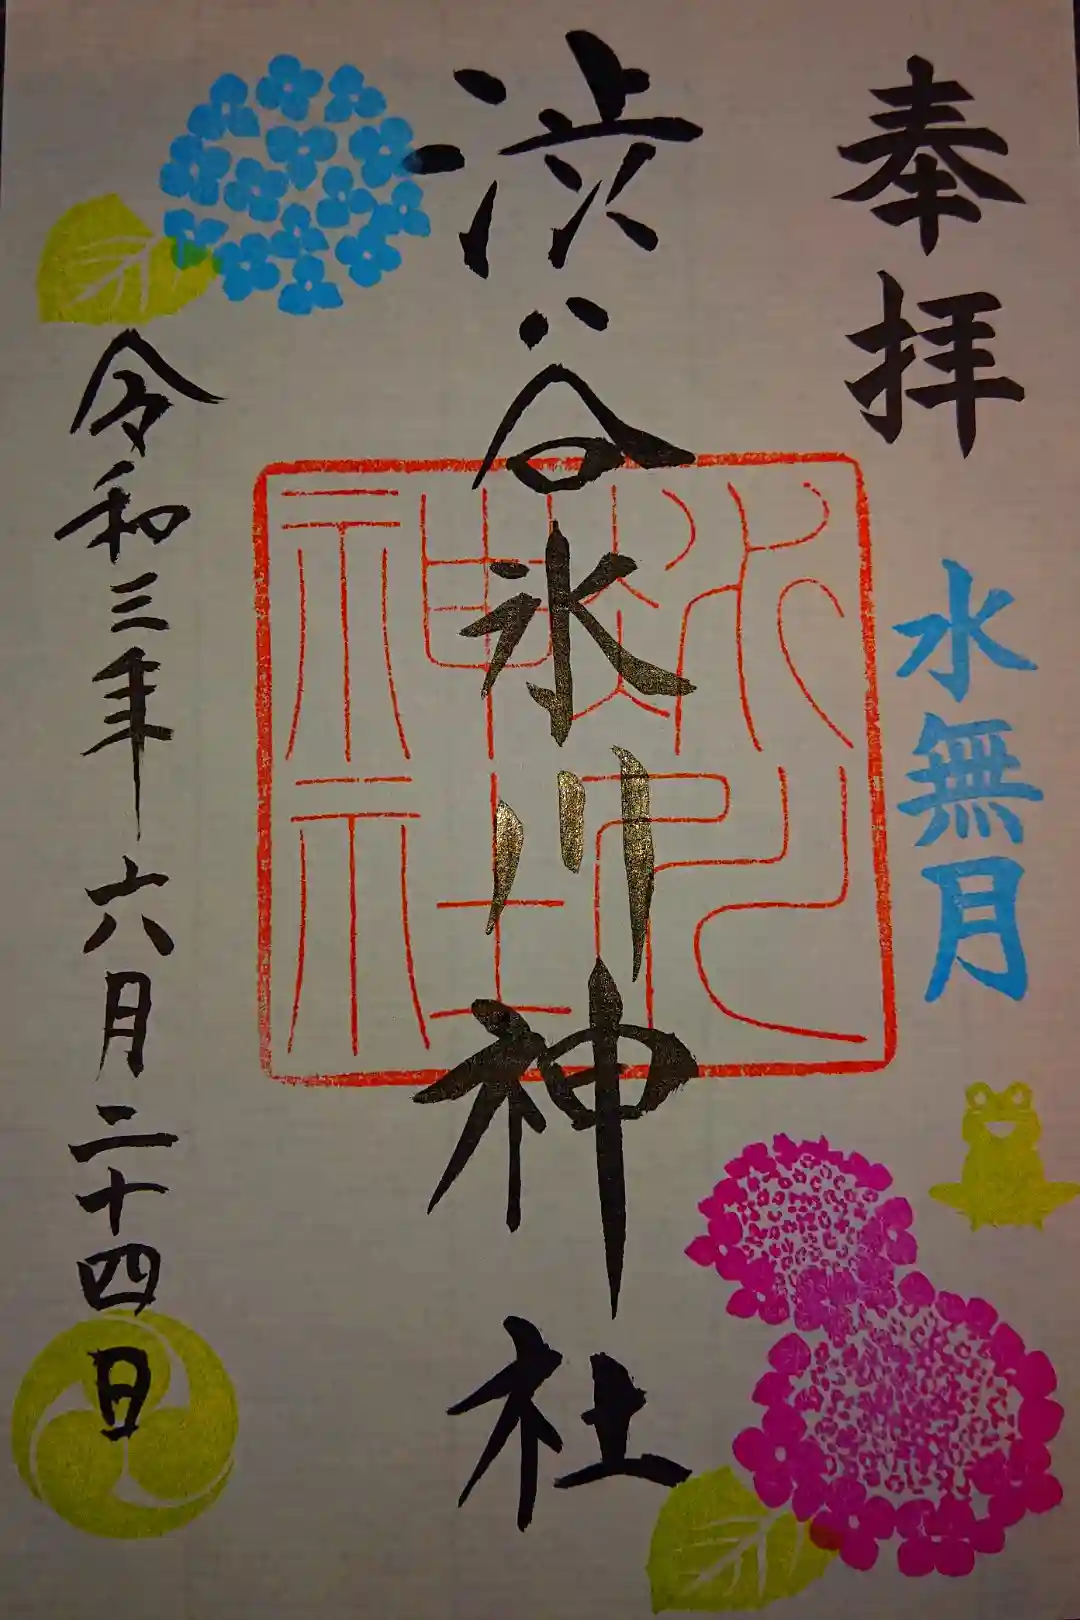 奉拝
水無月
渋谷氷川神社
氷川神社
令和三年六月二十四日